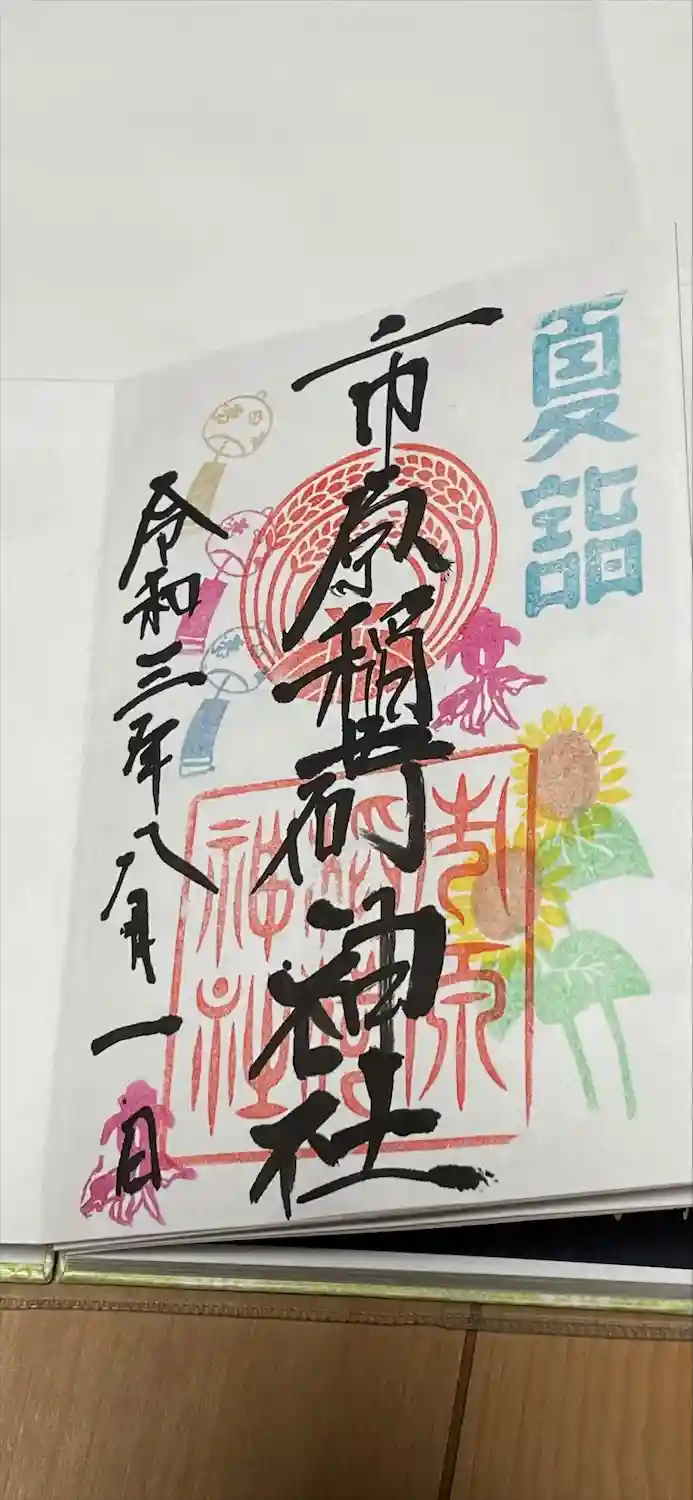 夏詣
市原稲荷神社
市原
稲荷
神社
令和三年八月一日